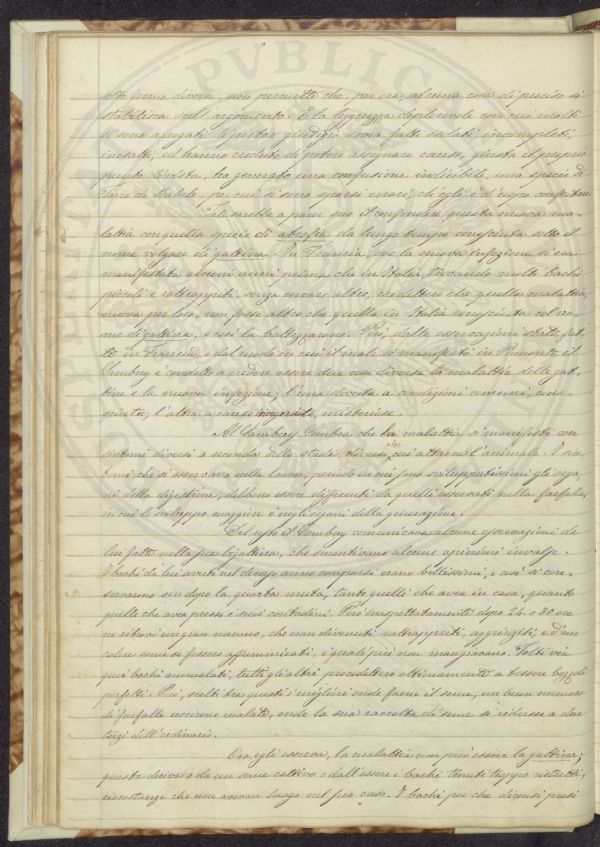 forme diverse, non permette che, per ora, alcuna cosa di preciso si
stabilisca sull'argomento. E la leggerezza deplorevole con cui molti
si sono arrogati di portar giudizi sovra fatti isolati, incompleti,
inesatti, ed hanno creduto di potere assegnare cause, giusta il proprio
punto di vista, ha generato una confusione indicibile, una specie di
Torre di Babele, per cui si sono sparsi errori, ch'egli è d'uopo
Tale sarebbe a parer suo il confondere questa nuova ma-
lattia con quella specie di atrofia da lungo tempo conosciuta sotto il
nome volgare di gattina. In Francia, ove la nuova infezione si era
manifestata alcuni anni prima che in Italia, trovando molti bachi
piccoli e rattrappiti, senza cercare altro, credettero che quella malattia,
nuova per loro, non fosse altro che quella in Italia conosciuta col no-
me di gattina, e così la battezzarono. Però, dalle osservazioni
in Francia, e dal modo in cui il male si manifestò in Piemonte il
Sambuy è condotto a credere essere due cose diverse la malattia delle gat-
tine e la nuova infezione; l'una dovuta a condizioni comuni, cono-
sciute; l'altra a cause incognite, misteriose.
Al Sambuy sembra che la malattia si manifesti con
sintomi diversi a seconda dello stadio diverso, in cui attacca l'animale. I sin-
tomi che si osservano nella larva, periodo in cui sono sviluppatissimi gli orga-
ni della digestione, debbono essere differenti da quelli osservati nella farfalla,
in cui lo sviluppo maggiore è negli organi della generazione.
Del resto il Sambuy comunicava alcune osservazioni da
lui fatte nella sua bigattiera, che smentivano alcune opinioni invalse.
I bachi da lui avuti nel decorso anno comparsi erano bellissimi, e così si con-
servarono sin dopo la quarta muta, tanto quelli che avea in casa, quanto
quelli che avea presso i suoi contadini. Però inaspettatamente dopo 24 o 30 ore
ne ritrovò un gran numero, che eran divenuti rattrappiti, aggrinziti, e d'un
colore come se fossero affumicati, i quali più non mangiavano. Tolti via
quei bachi ammalati, tutti gli altri procedettero ottimamente a tessere bozzoli
perfetti. Però, scelti tra questi i migliori onde farne il seme, un buon numero
di farfalle uscirono malate, onde la sua raccolta di seme si ridusse a due
terzi dell'ordinario.
Ora egli osserva, la malattia non può essere la gattina;
questa deriva o da un seme cattivo o dall'essere i bachi tenuti troppo ristretti,
circostanze che non avevan luogo nel suo caso. I bachi poi che dicensi presi